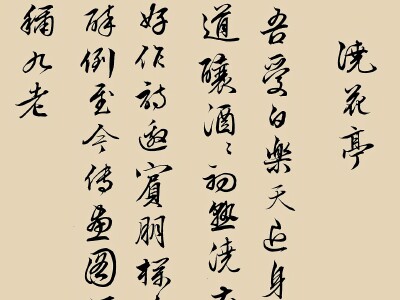 澆花亭
吾愛白樂天退身
道釀酒々初熟澆
好作詩邀賓朋欄
醉倒至今傳畫圖
稱九老